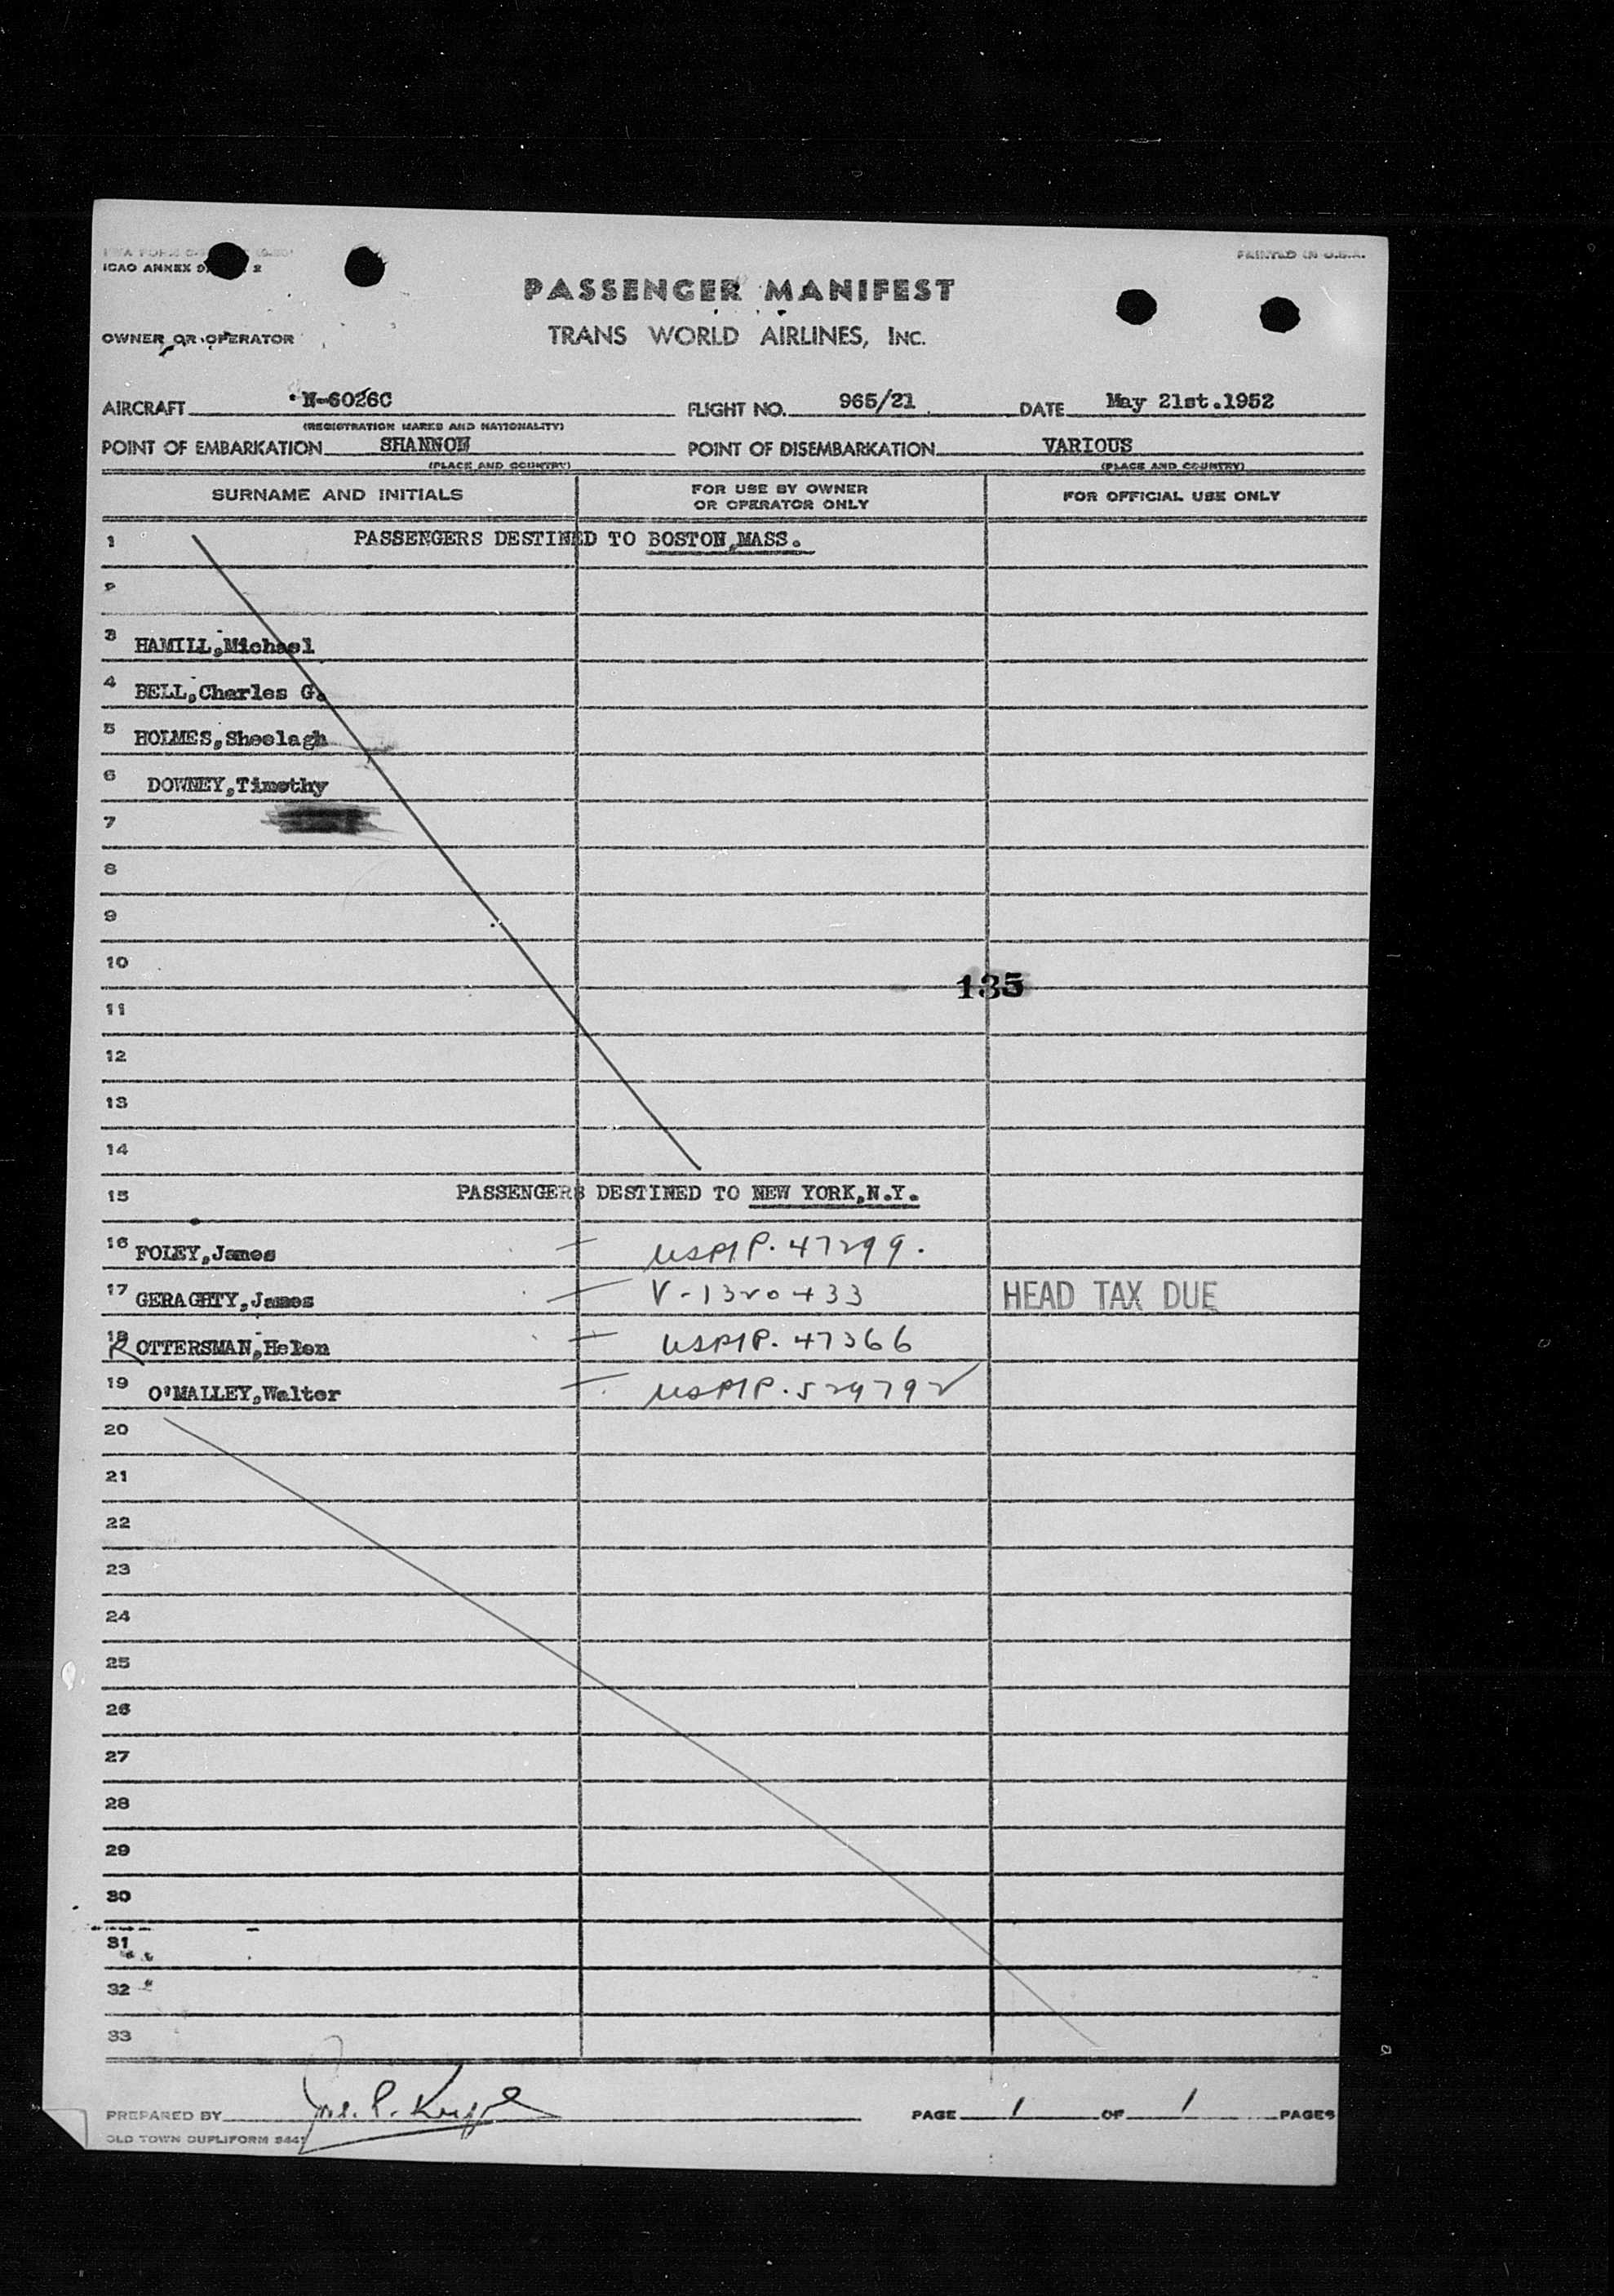 ICAO ANNEX 9 2
PRINTED IN U.S.A.
PASSENGER MANIFEST
OWNER OR OPERATOR TRANS WORLD AIRLINES, INC.
AIRCRAFT N-6026C FLIGHT NO. 965/21 DATE May 21st.1952
(REGISTRATION MARKS AND NATIONALITY)
POINT OF EMBARKATION SHANNON POINT OF DISEMBARKATION VARIOUS
(PLACE AND COUNTRY) (PLACE AND COUNTRY)
SURNAME AND INITIALS FOR USE BY OWNER OR OPERATOR ONLY FOR OFFICIAL USE ONLY
1 PASSENGERS DESTINED TO BOSTON,MASS.
2
3 HAMILL,Michael
4 BELL,Charles G.
5 HOLMES,Sheelagh
6 DOWNEY,Timothy
7
8
9
10
135
11
12
13
14
15 PASSENGERS DESTINED TO NEW YORK,N.Y.
16 FOLEY,James USPP. 47299.
17 GERAGHTY,James V-1320433 HEAD TAX DUE
18 ROTTERSMAN,Helen USPP. 47366
19 O'MALLEY,Walter USPP. 529792
20
21
22
23
24
25
26
27
28
29
30
31
32
33
PREPARED BY PAGE 1 OF 1 PAGES
OLD TOWN DUPLIFORM